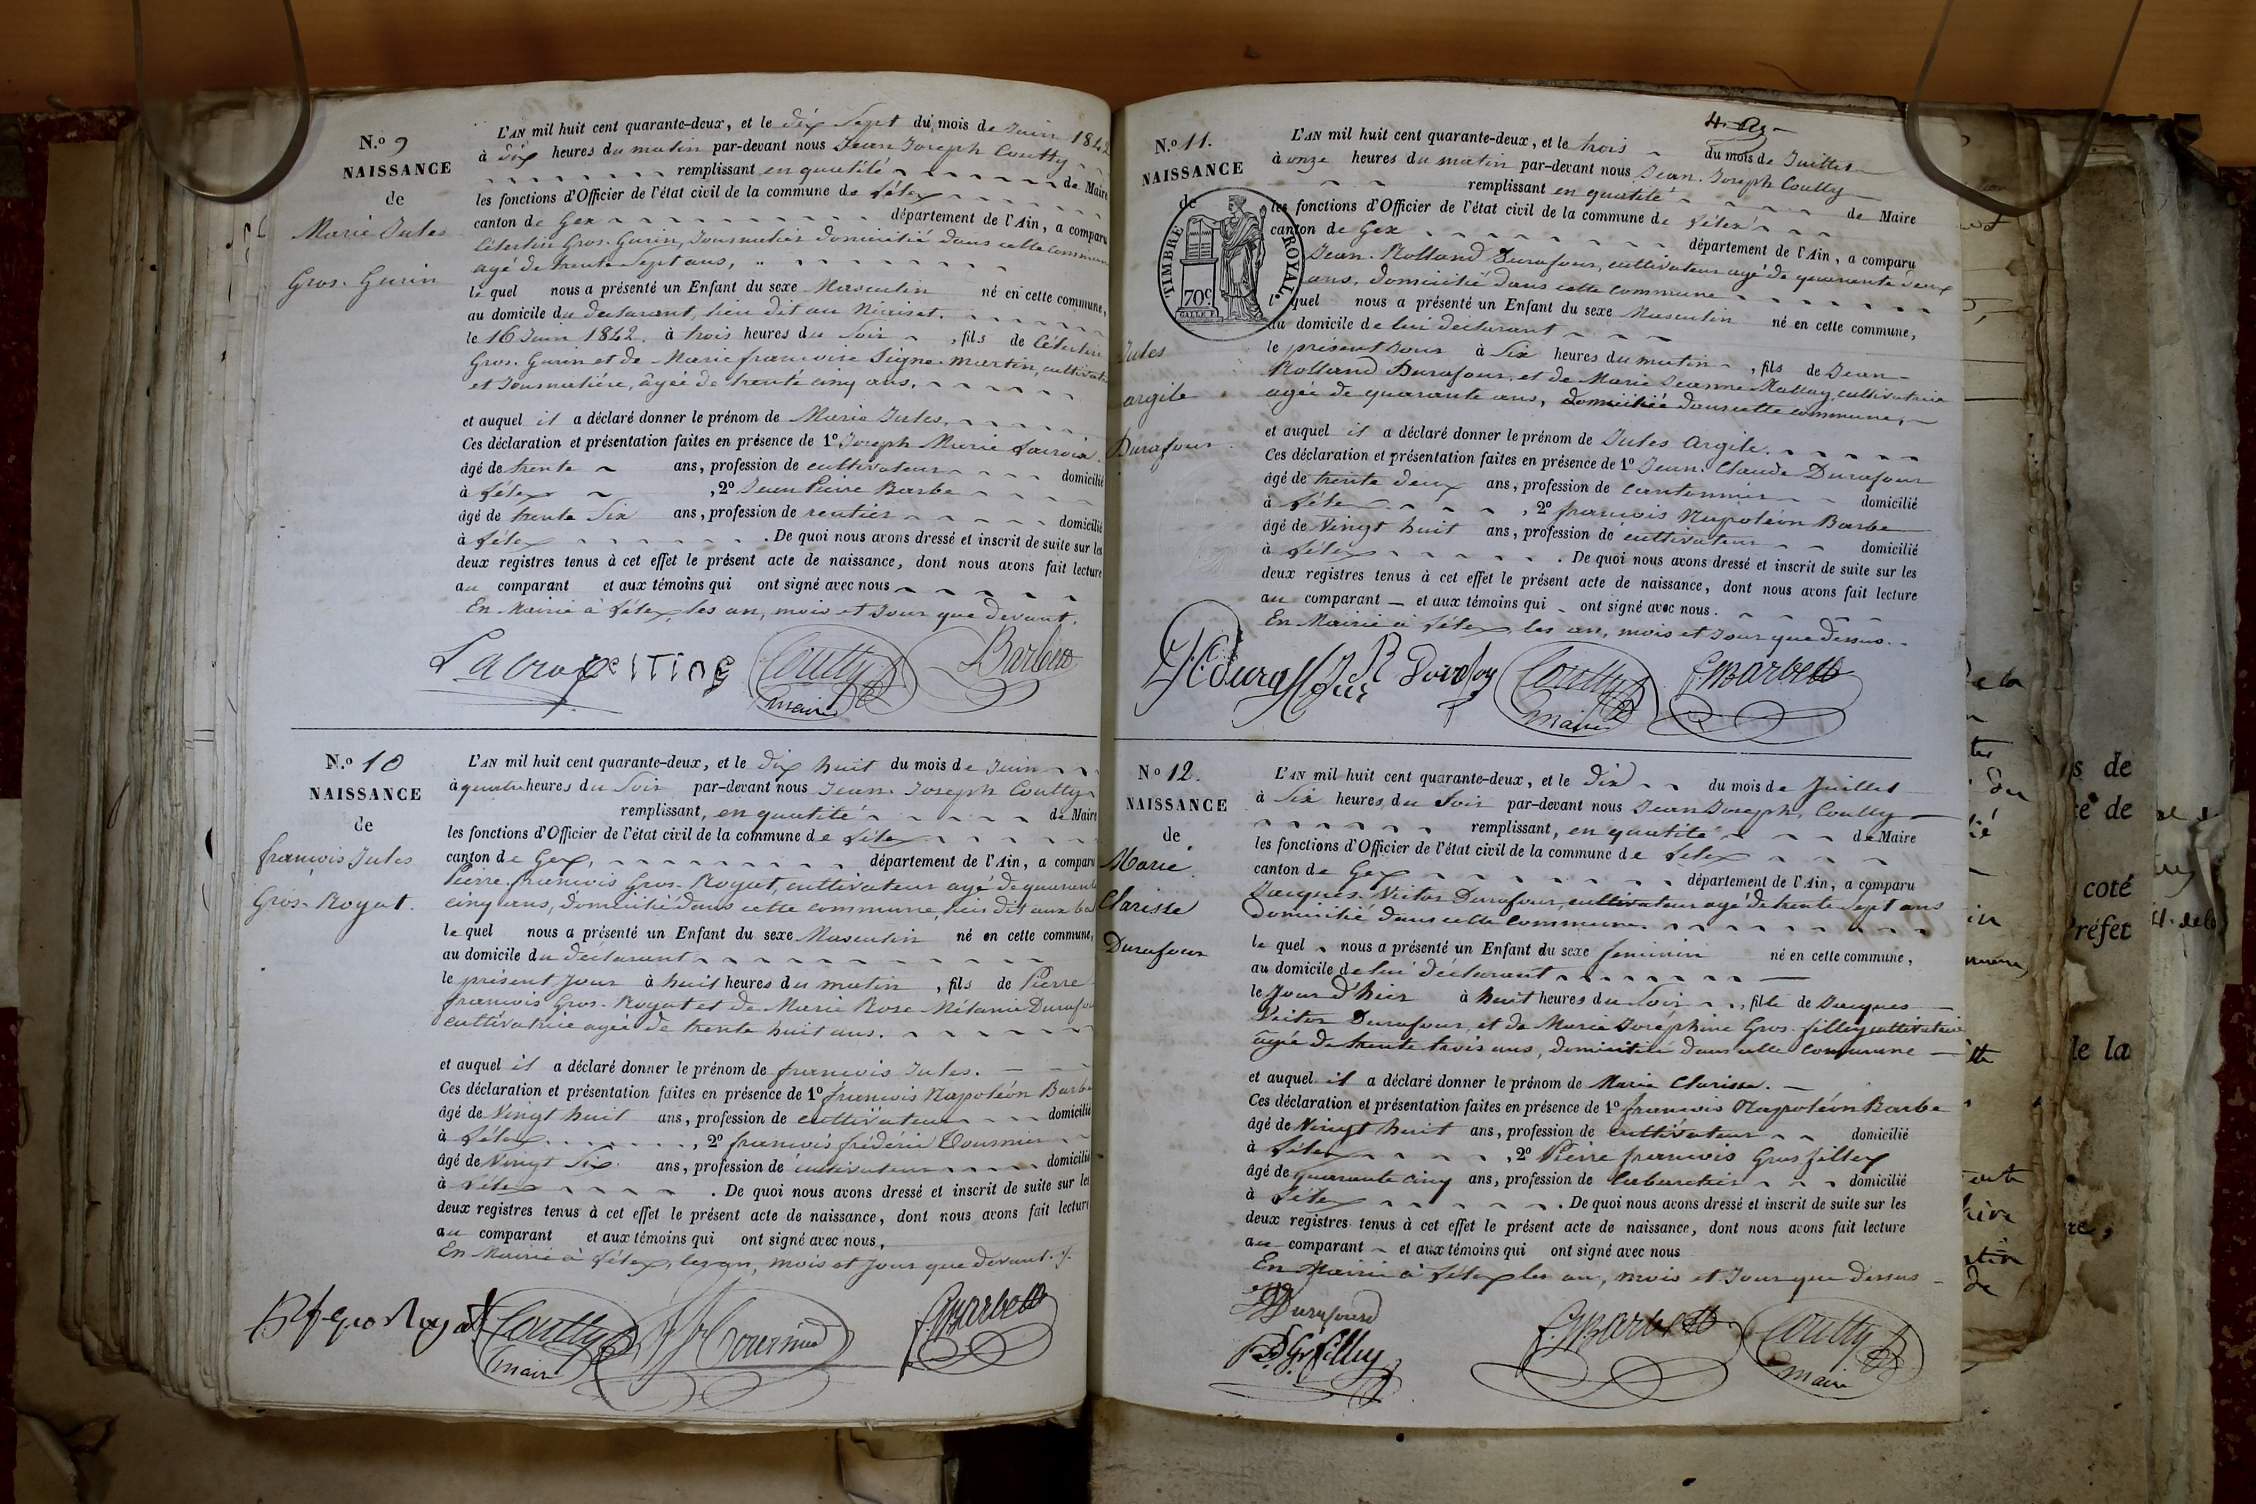 N.º 9
NAISSANCE
de
Marie Jules
Gros-Gurin
L'AN mil huit cent quarante-deux, et le dix Sept du mois de Juin 1842
à dix heures du matin par-devant nous Jean Joseph Coutty
remplissant en qualité de Maire
les fonctions d'Officier de l'état civil de la commune de Lélex
canton de Gex département de l'Ain, a comparu
Célestin Gros-Gurin, Journalier domicilié dans cette commune
agé de trente Sept ans,
le quel nous a présenté un Enfant du sexe Masculin né en cette commune,
au domicile du déclarant, lieu dit au
le 16 Juin 1842, à trois heures du Soir, fils de Célestin
Gros-Gurin et de Marie francoise Seigne-martin, cultivatrice
et Journalière, âgée de trente cinq ans.
et auquel il a déclaré donner le prénom de Marie Jules.
Ces déclaration et présentation faites en présence de 1º Joseph Marie Lacroix
âgé de trente ans, profession de cultivateur domicilié
à Lélex, 2º Jean Pierre Barbe
âgé de trente Six ans, profession de rentier domicilié
à Lélex. De quoi nous avons dressé et inscrit de suite sur les
deux registres tenus à cet effet le présent acte de naissance, dont nous avons fait lecture
au comparant et aux témoins qui ont signé avec nous
En Mairie à Lélex, les an, mois et Jour que devant.
Lacroix Coutty Barbe
maire
N.º 10
NAISSANCE
de
francois Jules
Gros-Royat.
L'AN mil huit cent quarante-deux, et le dix huit du mois de Juin
à quatre heures du Soir par-devant nous Jean Joseph Coutty
remplissant, en qualité de Maire
les fonctions d'Officier de l'état civil de la commune de Lélex
canton de Gex, département de l'Ain, a comparu
Pierre francois Gros-Royat, cultivateur agé de quarante
cinq ans, domicilié dans cette commune, lieu dit aux
le quel nous a présenté un Enfant du sexe Masculin né en cette commune,
au domicile du déclarant
le présent Jour à huit heures du matin, fils de Pierre
francois Gros-Royat et de Marie Rose Mélanie Durafour
cultivatrice agée de trente huit ans.
et auquel il a déclaré donner le prénom de francois Jules.
Ces déclaration et présentation faites en présence de 1º francois Napoléon Barbe
âgé de Vingt huit ans, profession de cultivateur domicilié
à Lélex, 2º francois frédéric Tournier
âgé de Vingt Six ans, profession de cultivateur domicilié
à Lélex. De quoi nous avons dressé et inscrit de suite sur les
deux registres tenus à cet effet le présent acte de naissance, dont nous avons fait lecture
au comparant et aux témoins qui ont signé avec nous,
En Mairie à Lélex, les an, mois et Jour que devant.
P f gro Royat Coutty Tournier f. Barbe
maire
N.º 11.
NAISSANCE
de
TIMBRE ROYAL.
70c
Jules
argile
Durafour
L'AN mil huit cent quarante-deux, et le trois du mois de Juillet
à onze heures du matin par-devant nous Jean-Joseph Coutty
remplissant en qualité de Maire
les fonctions d'Officier de l'état civil de la commune de Lélex
canton de Gex département de l'Ain, a comparu
Jean-Rolland Durafour, cultivateur agé de quarante deux
ans, domicilié dans cette commune
le quel nous a présenté un Enfant du sexe Masculin né en cette commune,
au domicile de lui déclarant
le présent Jour à Six heures du matin, fils de Jean-
Rolland Durafour, et de Marie Jeanne cultivatrice
agée de quarante ans, domiciliée dans cette commune,
et auquel il a déclaré donner le prénom de Jules Argile.
Ces déclaration et présentation faites en présence de 1º Jean-Claude Durafour
âgé de trente deux ans, profession de cantonnier domicilié
à Lélex, 2º francois Napoléon Barbe
âgé de Vingt huit ans, profession de cultivateur domicilié
à Lélex. De quoi nous avons dressé et inscrit de suite sur les
deux registres tenus à cet effet le présent acte de naissance, dont nous avons fait lecture
au comparant et aux témoins qui ont signé avec nous.
En Mairie à Lélex, les an, mois et Jour que dessus.
Coutty f. Barbe
maire
Nº 12.
NAISSANCE
de
Marie
Clarisse
Durafour
L'AN mil huit cent quarante-deux, et le Dix du mois de Juillet
à Six heures du Soir par-devant nous Jean Joseph, Coutty
remplissant, en qualité de Maire
les fonctions d'Officier de l'état civil de la commune de Lélex
canton de Gex département de l'Ain, a comparu
Jacques-Victor Durafour, cultivateur agé de trente Sept ans
domicilié dans cette commune
le quel nous a présenté un Enfant du sexe feminin né en cette commune,
au domicile de lui déclarant
le Jour d'hier à huit heures du Soir, fille de Jacques
Victor Durafour, et de Marie Joséphine Gros-filley cultivatrice
agée de trente trois ans, domiciliée dans cette commune
et auquel il a déclaré donner le prénom de Marie Clarisse.
Ces déclaration et présentation faites en présence de 1º francois Napoléon Barbe
âgé de Vingt huit ans, profession de cultivateur domicilié
à Lélex, 2º Pierre francois Gros filley
âgé de quarante cinq ans, profession de Cabaretier domicilié
à Lélex. De quoi nous avons dressé et inscrit de suite sur les
deux registres tenus à cet effet le présent acte de naissance, dont nous avons fait lecture
au comparant et aux témoins qui ont signé avec nous
En Mairie à Lélex les an, mois et Jour que dessus
Durafour
Gr filley f. Barbe Coutty
maire